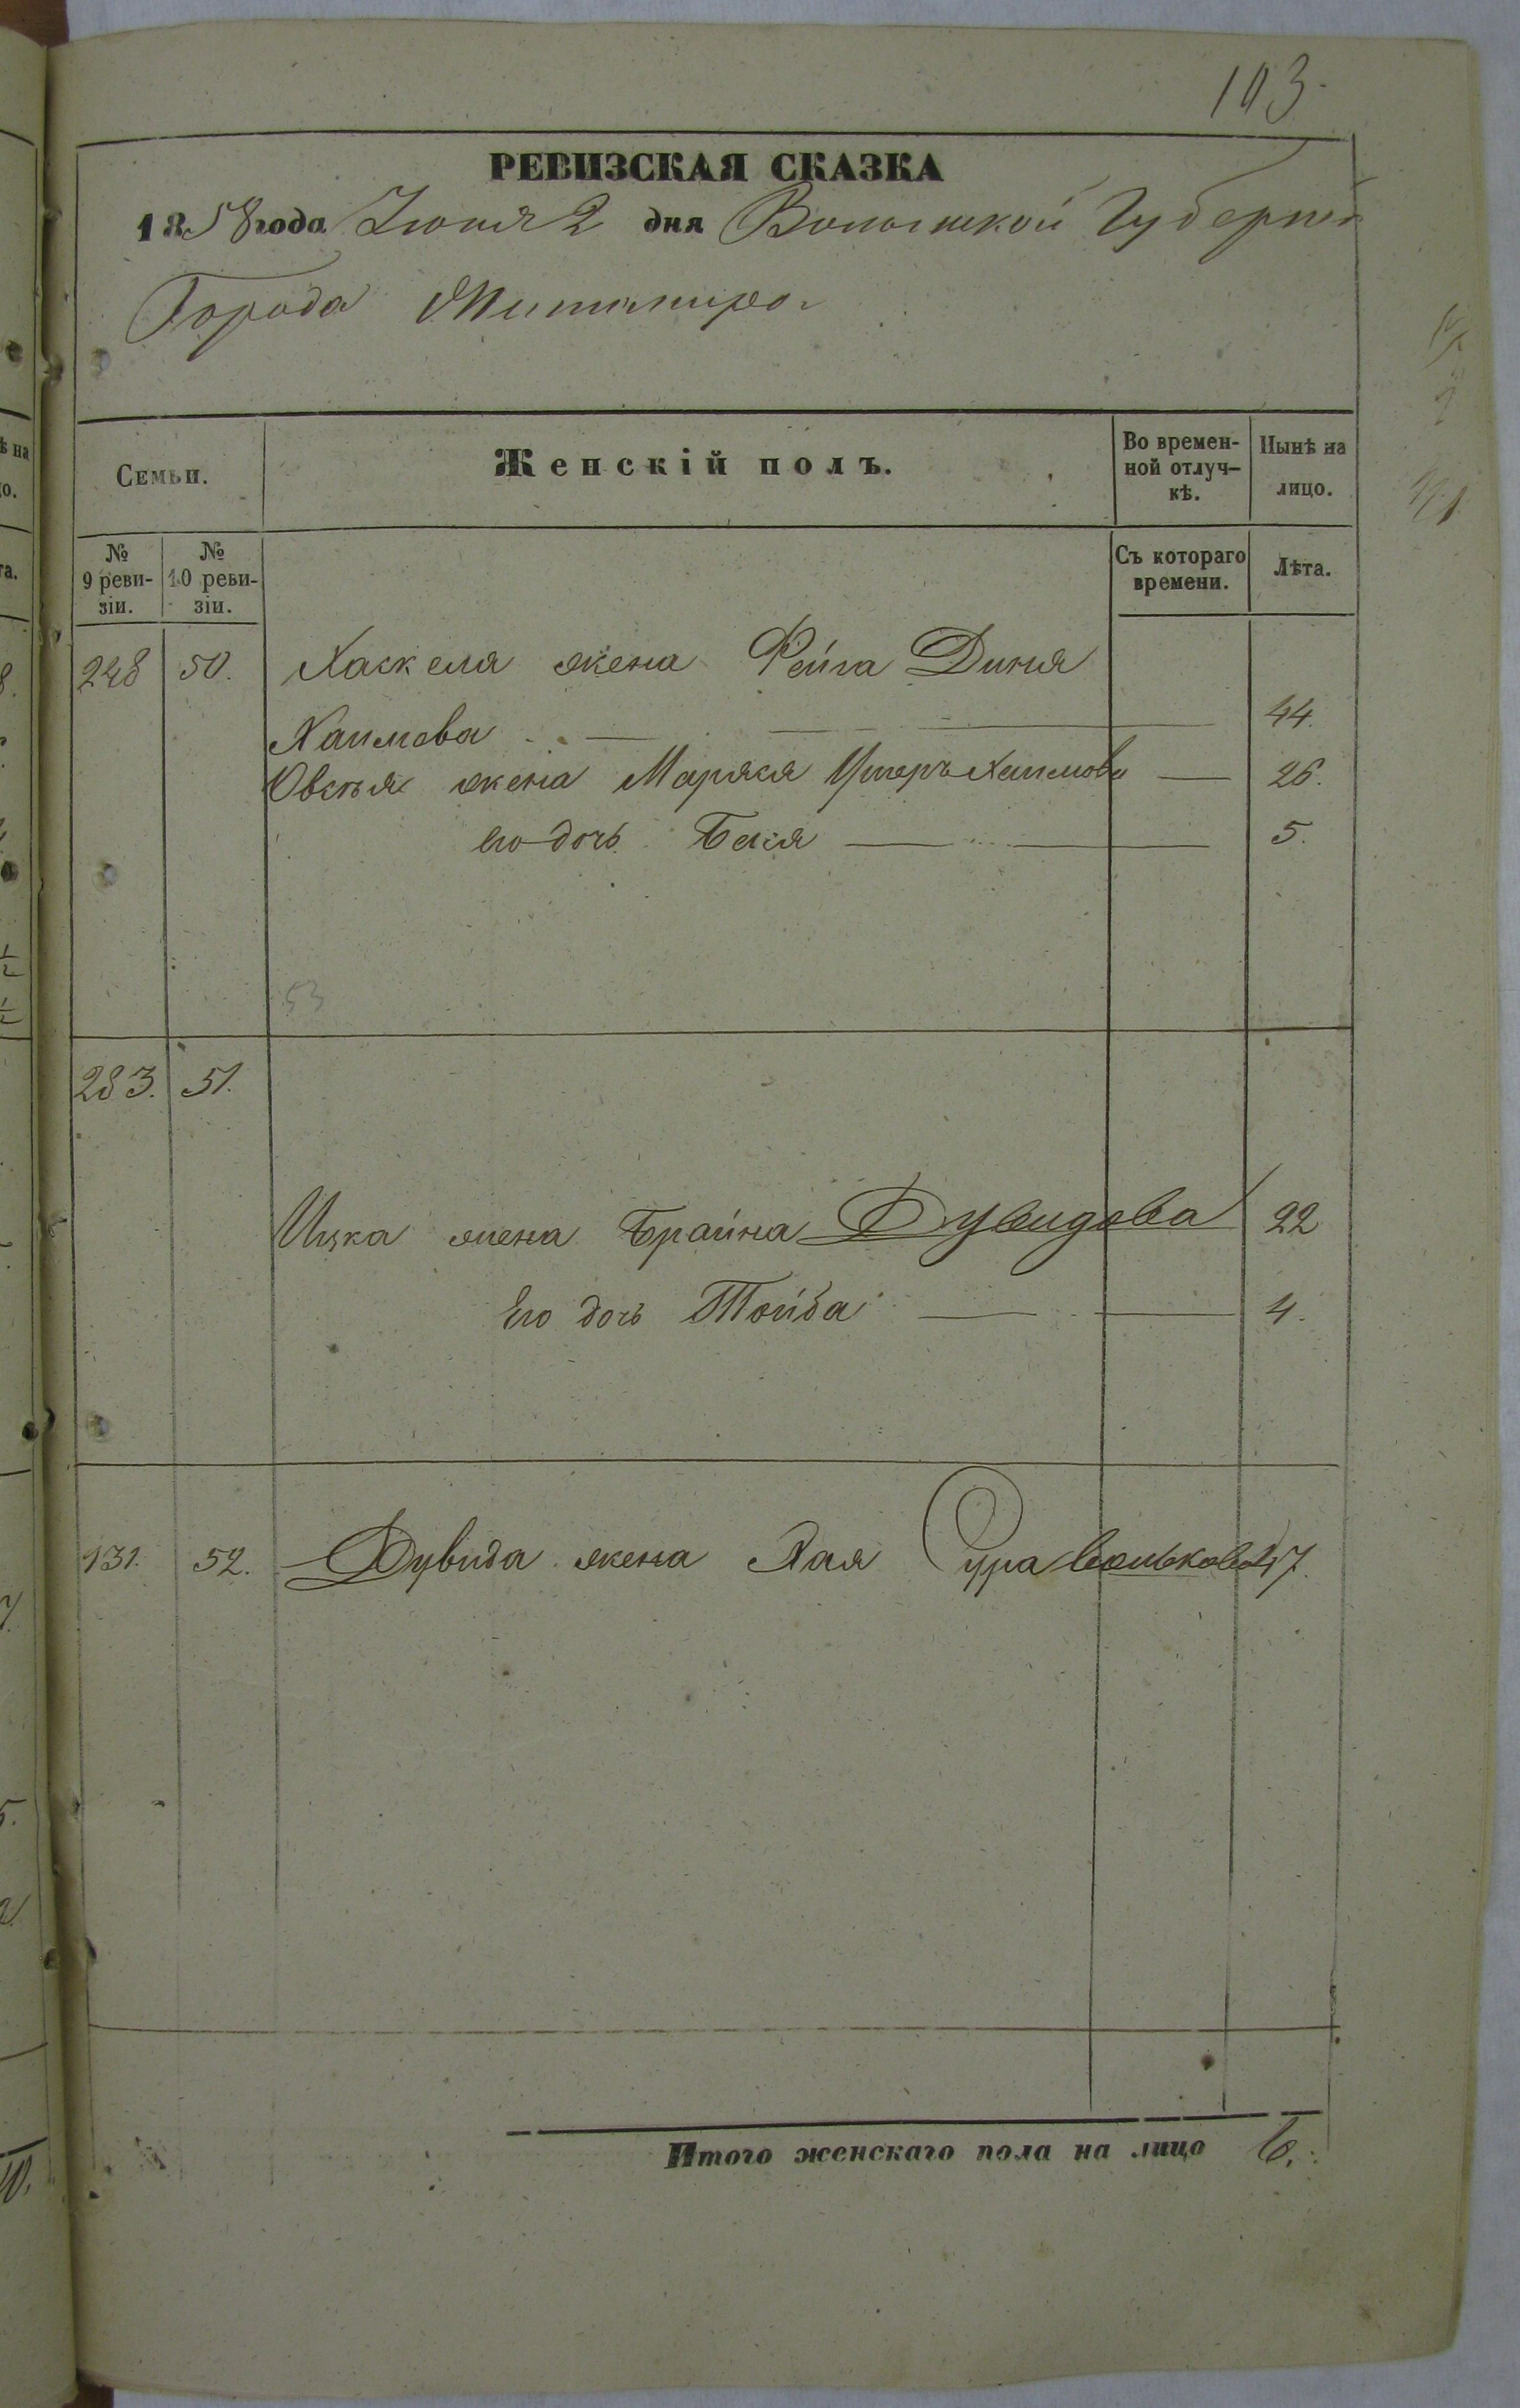 103.
РЕВИЗСКАЯ СКАЗКА
1858 года Іюня 2 дня Волынской Губерніи
Города Житомира
Семьи. Женскій полъ. Во времен- ной отлуч- кѣ. Нынѣ на лицо.
№ 9 реви- зіи. № 10 реви- зіи. Съ котораго времени. Лѣта.
248 50. Хаскеля жена Фейга Диня
Хаимова 44.
Овсѣя жена Маряся Хаимова 26.
его дочь Бася 5.
53
283. 51.
Ицка жена Брайна Дувидова 22
Его дочь Тойба 4.
131. 52. Дувида жена Хая Сура Волькова 47.
Итого женскаго пола на лицо 6.